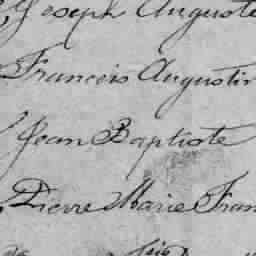 Joseph Auguste
Francois Augustin
Jean Baptiste
Pierre Marie Fran